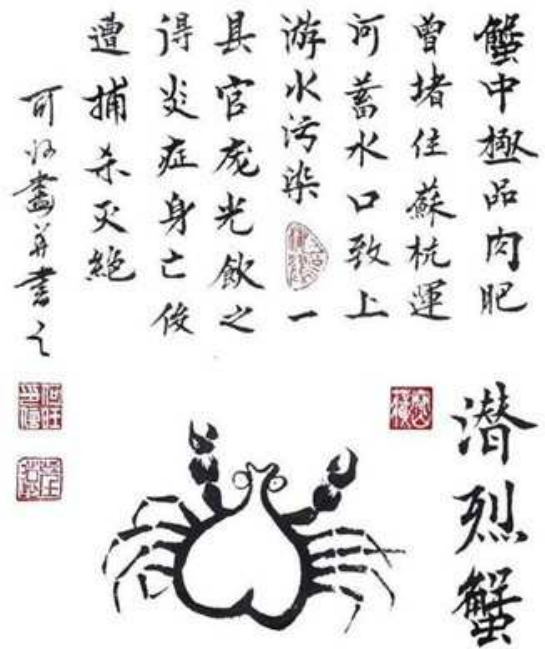 蟹中極品肉肥
曾堵住蘇杭運
河蓄水口致上
游水污染一
县官庞光飲之
得炎症身亡俊
遭捕杀灭絶
可畫并書之
潜烈蟹